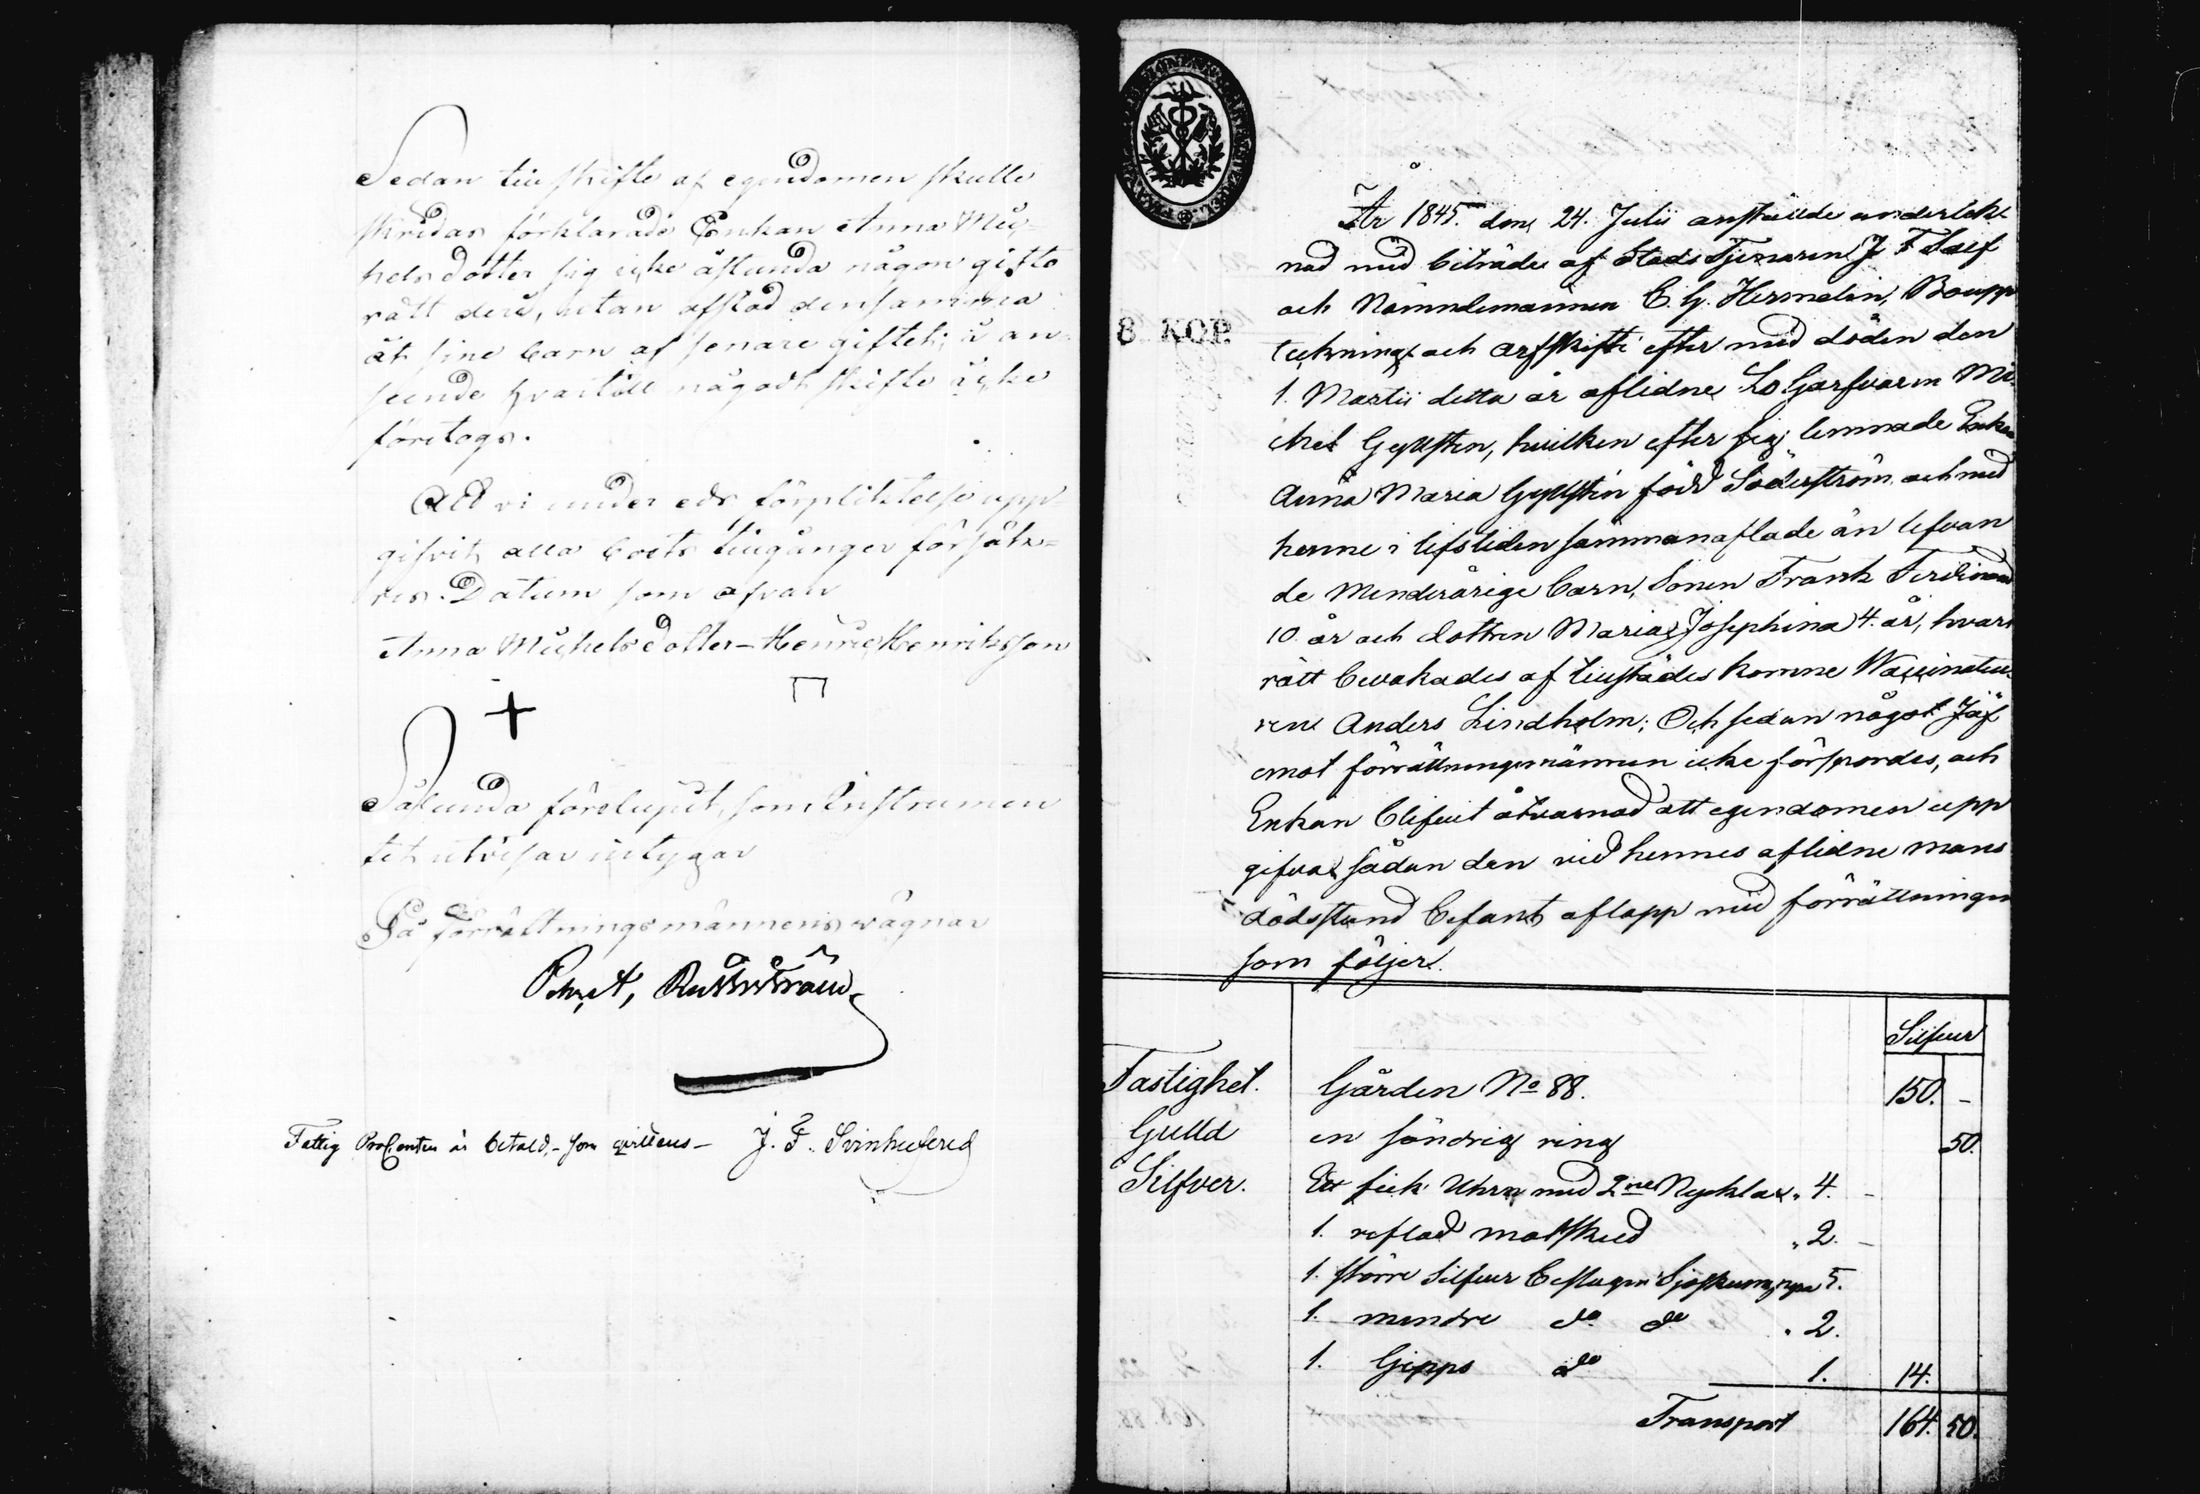 Sedan till skifte af egendomen skulle
skridas förklarade Enkan Anna Mic-
helsdotter sig icke åstunda någon gifto
rätt deri, utan afstod densamma
åt sine barn af senare giftet, i an
seende hvartill något skifte icke
företogs.
Att vi under eds förpliktelse upp-
gifvit alla boets tillgångar försäk-
ras. Datum som ofvan
Anna Michelsdotter - Henric Henriksson
Sålunda föreluput, som Instrumen
tet utvisar intygar
På förrättningsmännens vägnar
Fattig ProCenten är betald, - som qvitteras - J. F. Svinhufvud
8 KOP.
År 1845. den 24. Julii anställde underteckn
nad med biträde af StadsTjenaren J F
och Nämndemannen C. G. Hermelin, Boupp
teckning och arfskifte efter med döden den
1. Martii detta år aflidne LoGarfvaren Mi
chel Gyllsten, hvilken efter sig lemnade Enkan
Anna Maria Gyllstén född Söderström och med
henne i lifstiden sammanaflade än lefvan
de Minderårige barn, Sonen Frank Ferdinand
10 år och dottren Maria Josephina 4. år, hvars
rätt bevakades af tillstädes komne Vaccinateu
ren Anders Lindholm; Och sedan något Jäf
emot förrättningsmännen icke förspordes, och
Enkan blifvit åtvarnad att egendomen upp
gifva sådan den vid hennes aflidne mans
dödsstund befants aflopp med förrättningen
som följer.
Silfver
Fastighet. Gården No 88. 150. -
Gulld en söndrig ring 50.
Silfver. Ett fick Uhr med 2ne Nycklar " 4. -
1. reflad matsked " 2. -
1. större Silfver beslagen Sjöskums 5.
1. mindre do do " 2.
1. Gipps do 1. 14.
Transport 164. 50.